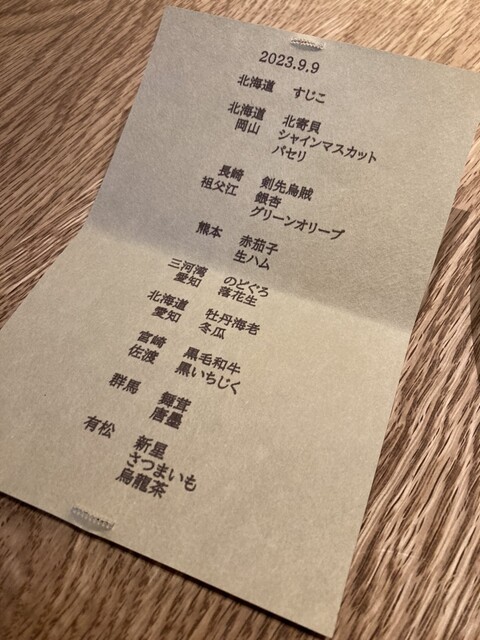 2023.9.9
北海道 すじこ
北海道 北寄貝
岡山 シャインマスカット
パセリ
長崎 剣先烏賊
祖父江 銀杏
グリーンオリーブ
熊本 赤茄子
生ハム
三河湾 のどぐろ
愛知 落花生
北海道 牡丹海老
愛知 冬瓜
宮崎 黒毛和牛
佐渡 黒いちじく
群馬 舞茸
唐墨
有松 新星
さつまいも
烏龍茶